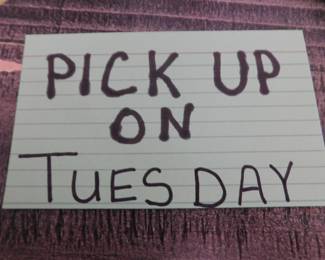 PICK UP
ON
TUESDAY